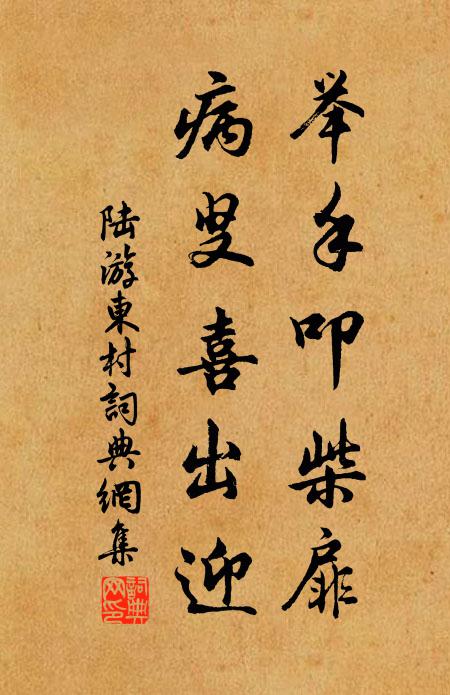 举手叩柴扉
病叟喜出迎
陆游東村詞典網集
詞典网印